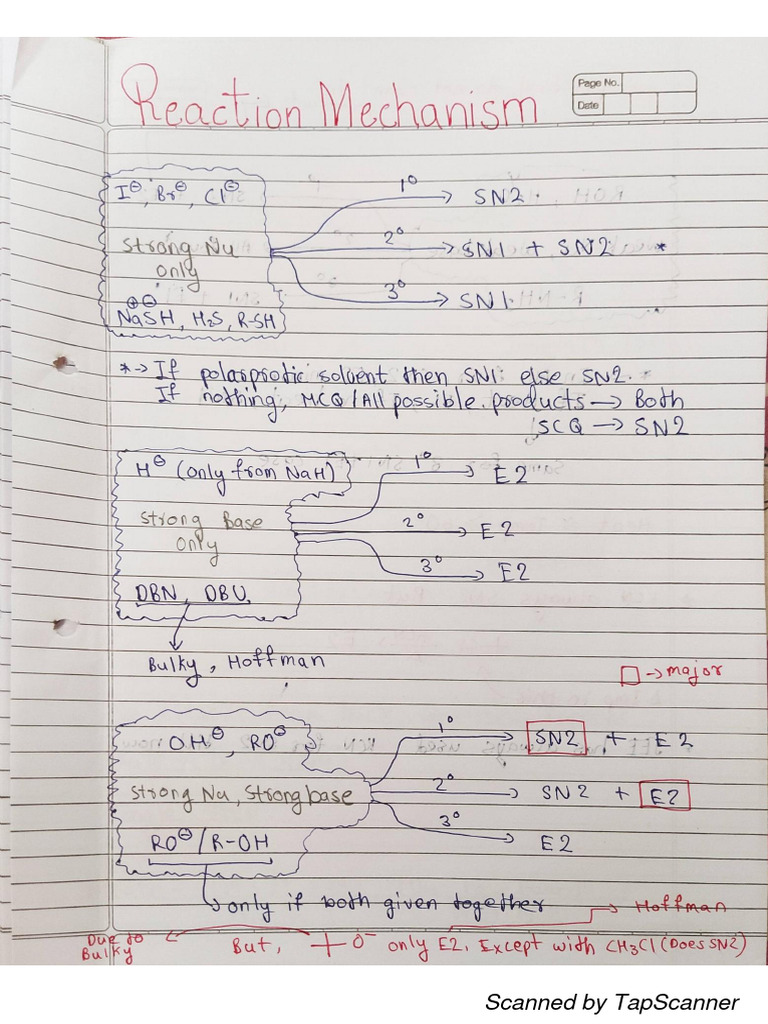 Reaction Mechanism
Page No.
Date
I⊖, Br⊖, Cl⊖
1° → SN2
Strong Nu only
2° → SN1 + SN2 *
⊕⊖
NaSH, H2S, R-SH
3° → SN1
*→ If polarprotic solvent then SN1 else SN2.
If nothing, MCQ/All possible products → Both
SCQ → SN2
H⊖ (only from NaH)
1° → E2
Strong Base
2° → E2
only
3° → E2
DBN, DBU
Bulky, Hoffman
□ → major
OH⊖, RO⊖
1° → SN2 + E2
Strong Nu, Strong base
2° → SN2 + E2
3° → E2
RO⊖/R-OH
only if both given together
Hoffman
Due to Bulky
But, O⁻ only E2, Except with CH3Cl (Does SN2)
Scanned by TapScanner